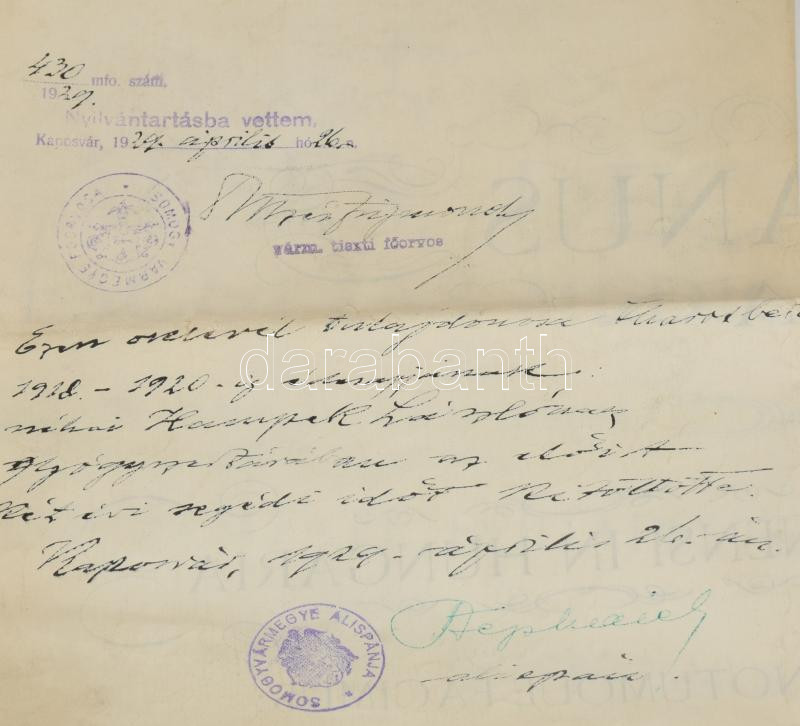 430 mfo. szám.
1929.
Nyilvántartásba vettem.
Kaposvár, 1929. április hó 26-n.
SOMOGY VÁRMEGYE FŐORVOSA
várm. tiszti főorvos
Ezen oklevél tulajdonosa
1918. - 1920-ig
néhai László
gyógyszertárában az előírt
két évi segédi időt kitöltötte.
Kaposvár, 1929. április 26-án.
SOMOGYVÁRMEGYE ALISPÁNJA
alispán.
darabanth
ANUS
ENSI IN HUNGARIA